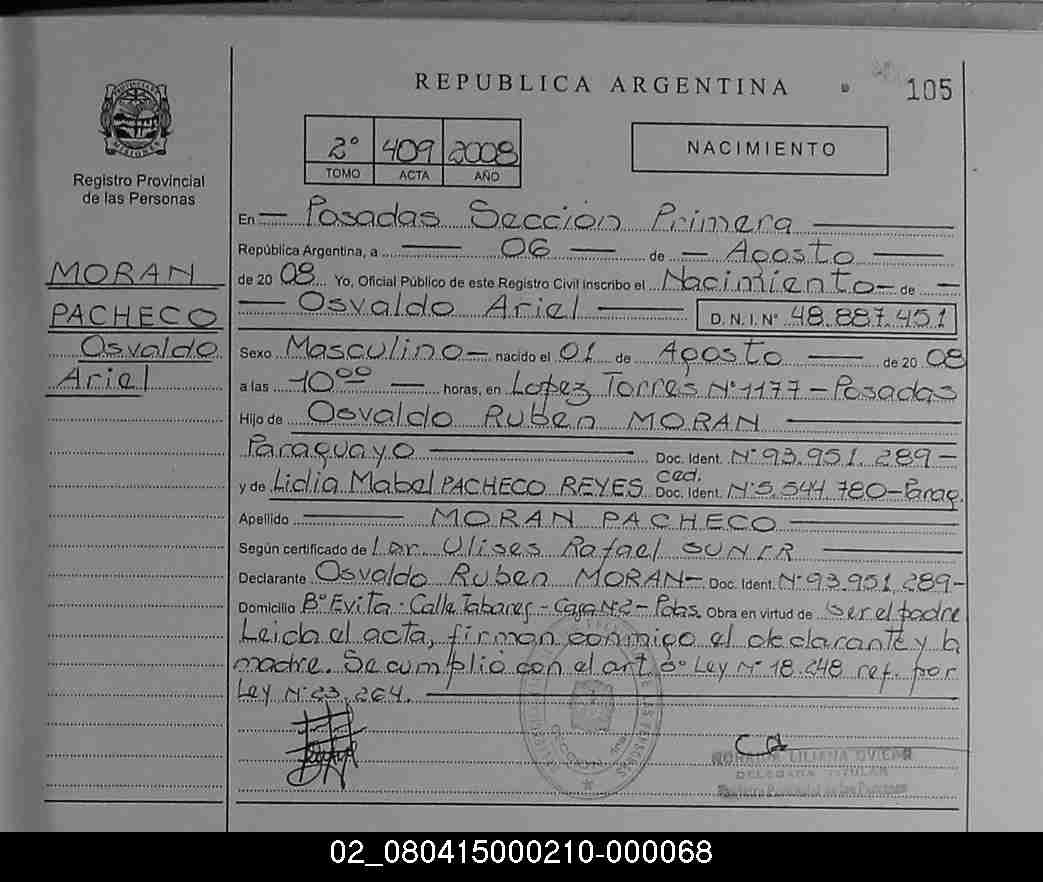 REPUBLICA ARGENTINA
105
2º 409 2008
TOMO ACTA AÑO
NACIMIENTO
Registro Provincial
de las Personas
MORAN
PACHECO
Osvaldo
Ariel
En — Posadas Sección Primera
República Argentina, a — 06 — de — Agosto —
de 20 08 Yo, Oficial Público de este Registro Civil inscribo el Nacimiento — de —
— Osvaldo Ariel — D. N. I. Nº 48.887.451
Sexo Masculino — nacido el 01 de Agosto — de 20 08
a las 10⁰⁰ — horas, en Lopez Torres Nº 1177 - Posadas
Hijo de Osvaldo Ruben MORAN
Paraguayo — Doc. Ident. Nº 93.951.289 —
y de Lidia Mabel PACHECO REYES ced. Doc. Ident. Nº 5.544.780 - Parag.
Apellido — MORAN PACHECO —
Según certificado de Ulises Rafael —
Declarante Osvaldo Ruben MORAN — Doc. Ident. Nº 93.951.289 -
Domicilio Bº Evita - Calle Tabares - Casa Nº 2 - Pdas. Obra en virtud de ser el padre
Leida el acta, firman conmigo el declarante y la
madre. Se cumplió con el art Ley Nº 18.248 ref. por
Ley Nº 23.264.
LILIANA
DELEGADA TITULAR
Registro Provincial de las Personas
02_080415000210-000068